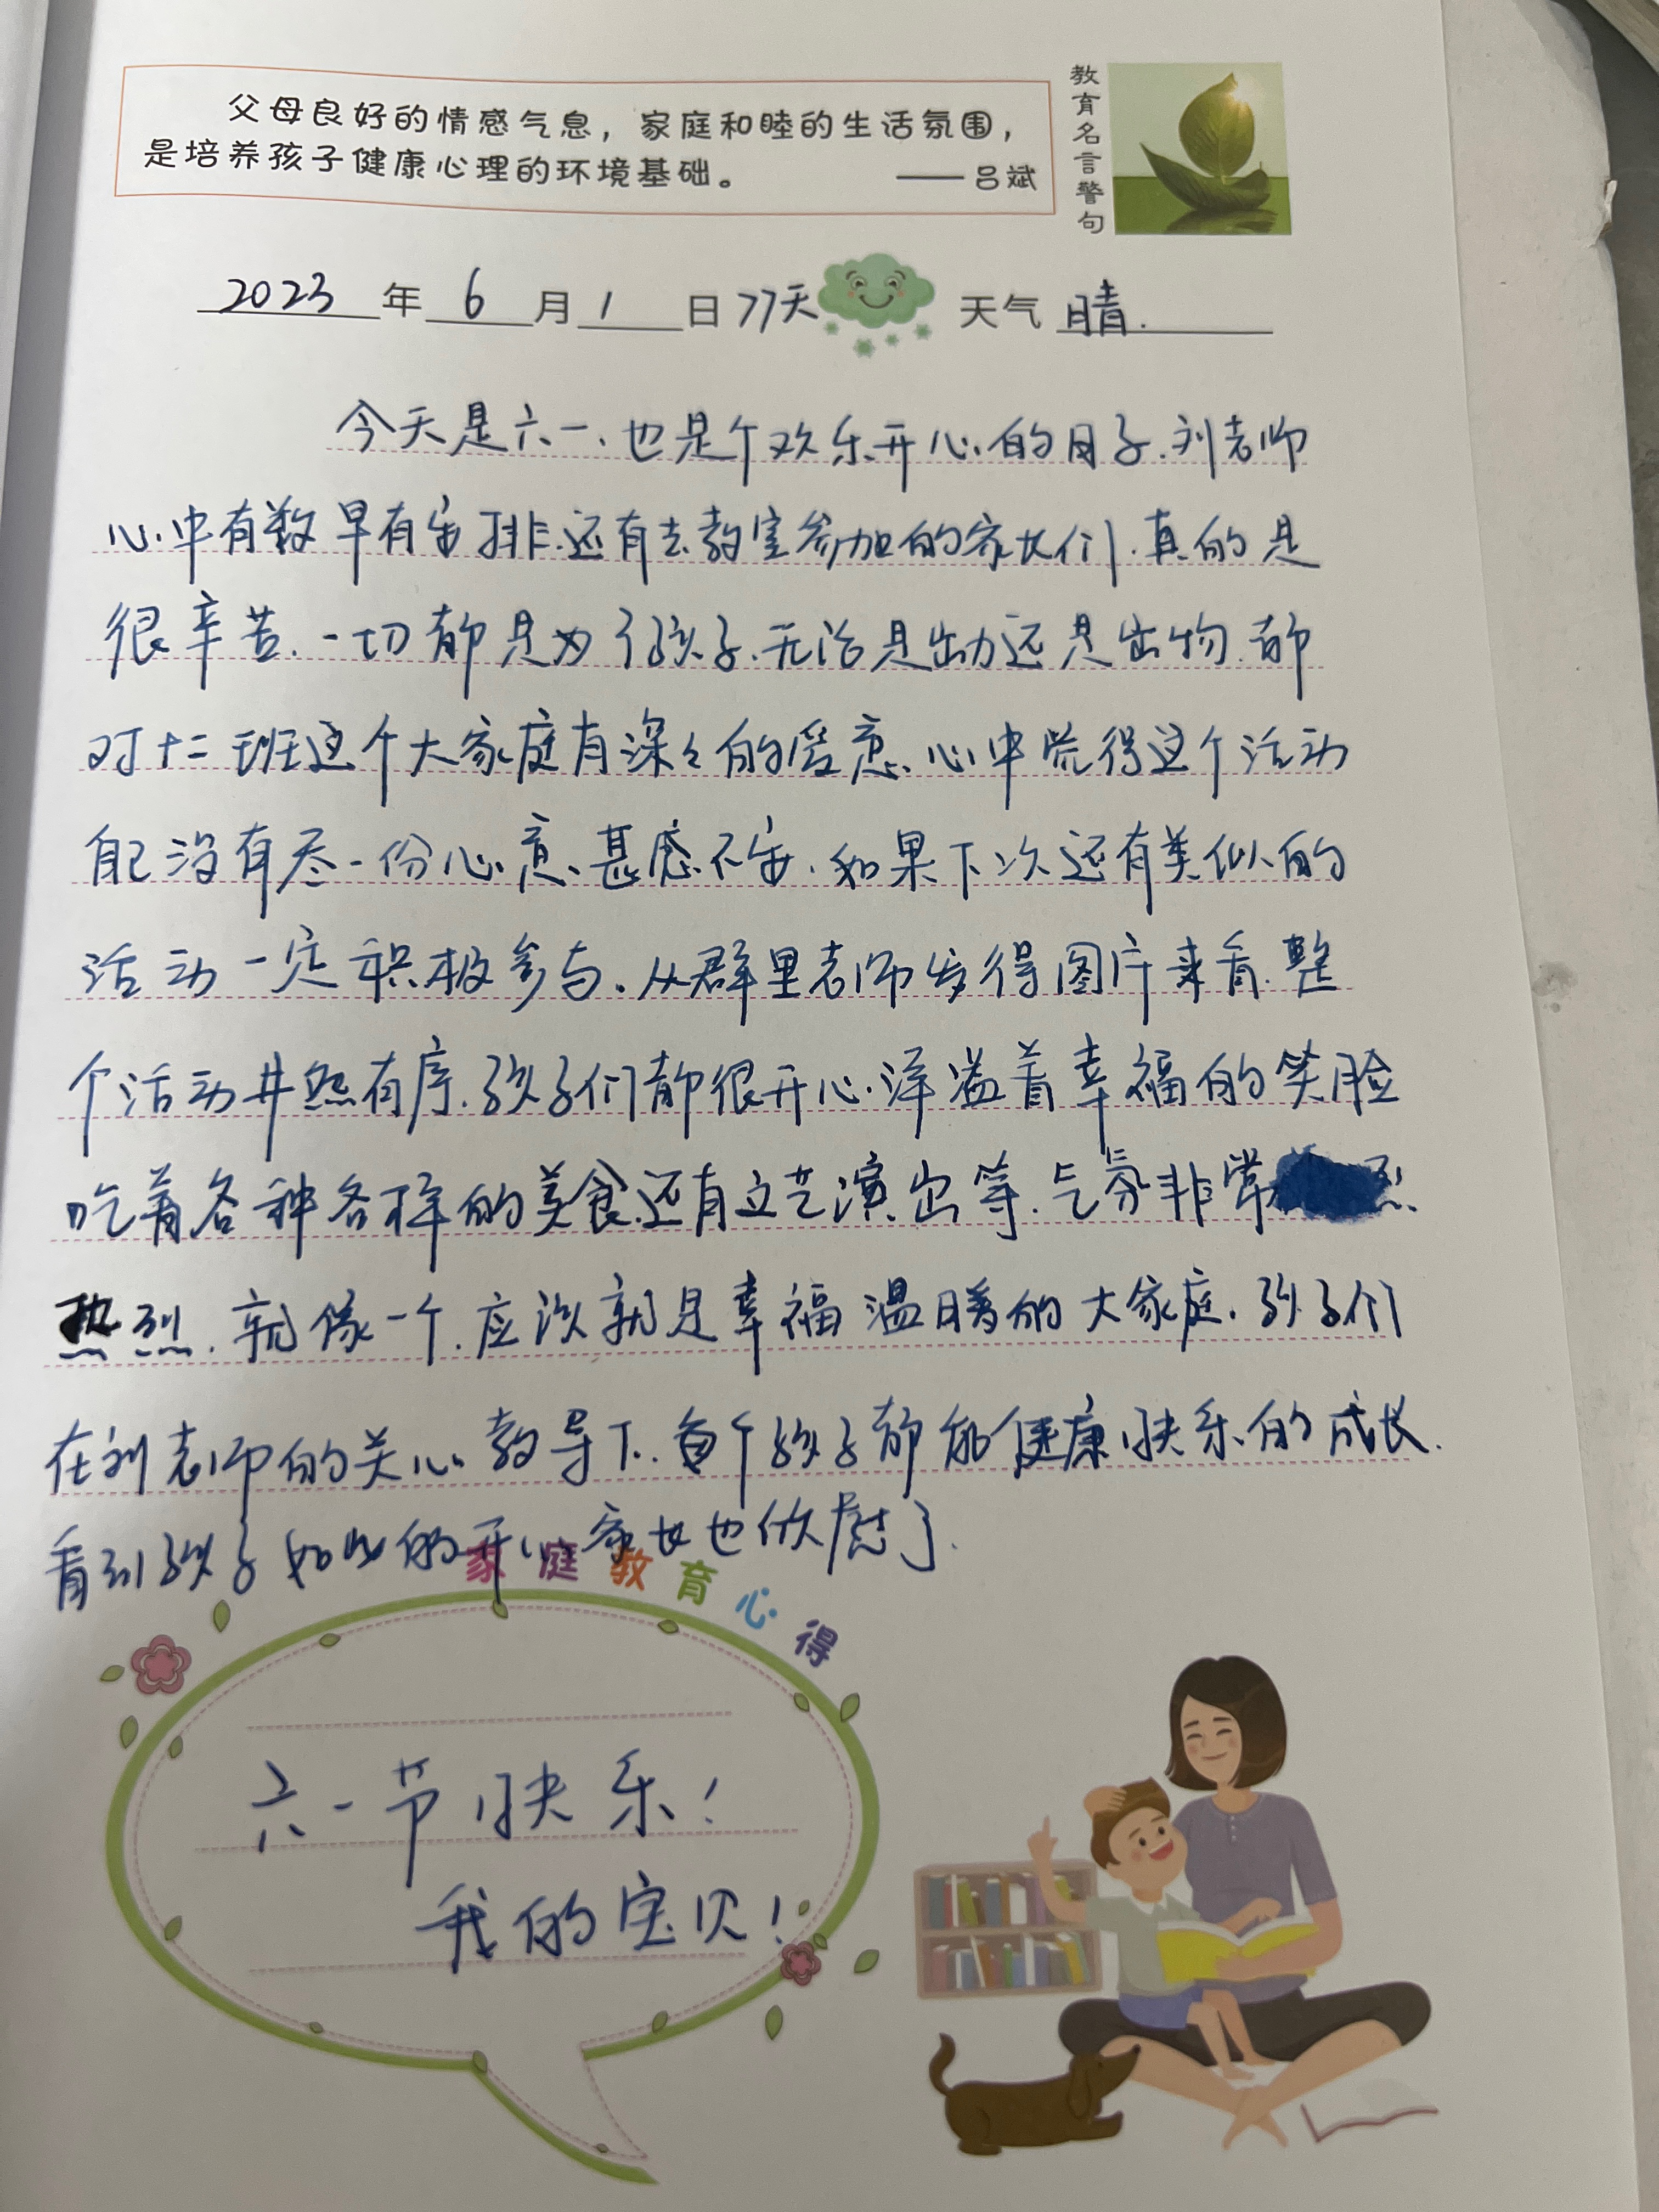 父母良好的情感气息，家庭和睦的生活氛围，
是培养孩子健康心理的环境基础。 ——吕斌
教育名言警句
2023年6月1日77天 天气晴.
今天是六一、也是个欢乐开心的日子.刘老师
心中有数早有安排.还有去教室参加的家长们.真的是
很辛苦.一切都是为了孩子.无论是出力还是出物.都
对十二班这个大家庭有深々的爱意、心中觉得这个活动
自己没有尽一份心意、甚感不安.如果下次还有类似的
活动一定积极参与.从群里老师发得图片来看.整
个活动井然有序.孩子们都很开心.洋溢着幸福的笑脸
吃着各种各样的美食.还有文艺演出等.气氛非常
热烈.就像一个.应该就是幸福温暖的大家庭.孩子们
在刘老师的关心教导下.每个孩子都能健康快乐的成长.
看到孩子如此的开心家长也欣慰了.
家庭教育心得
六一节快乐!
我的宝贝!